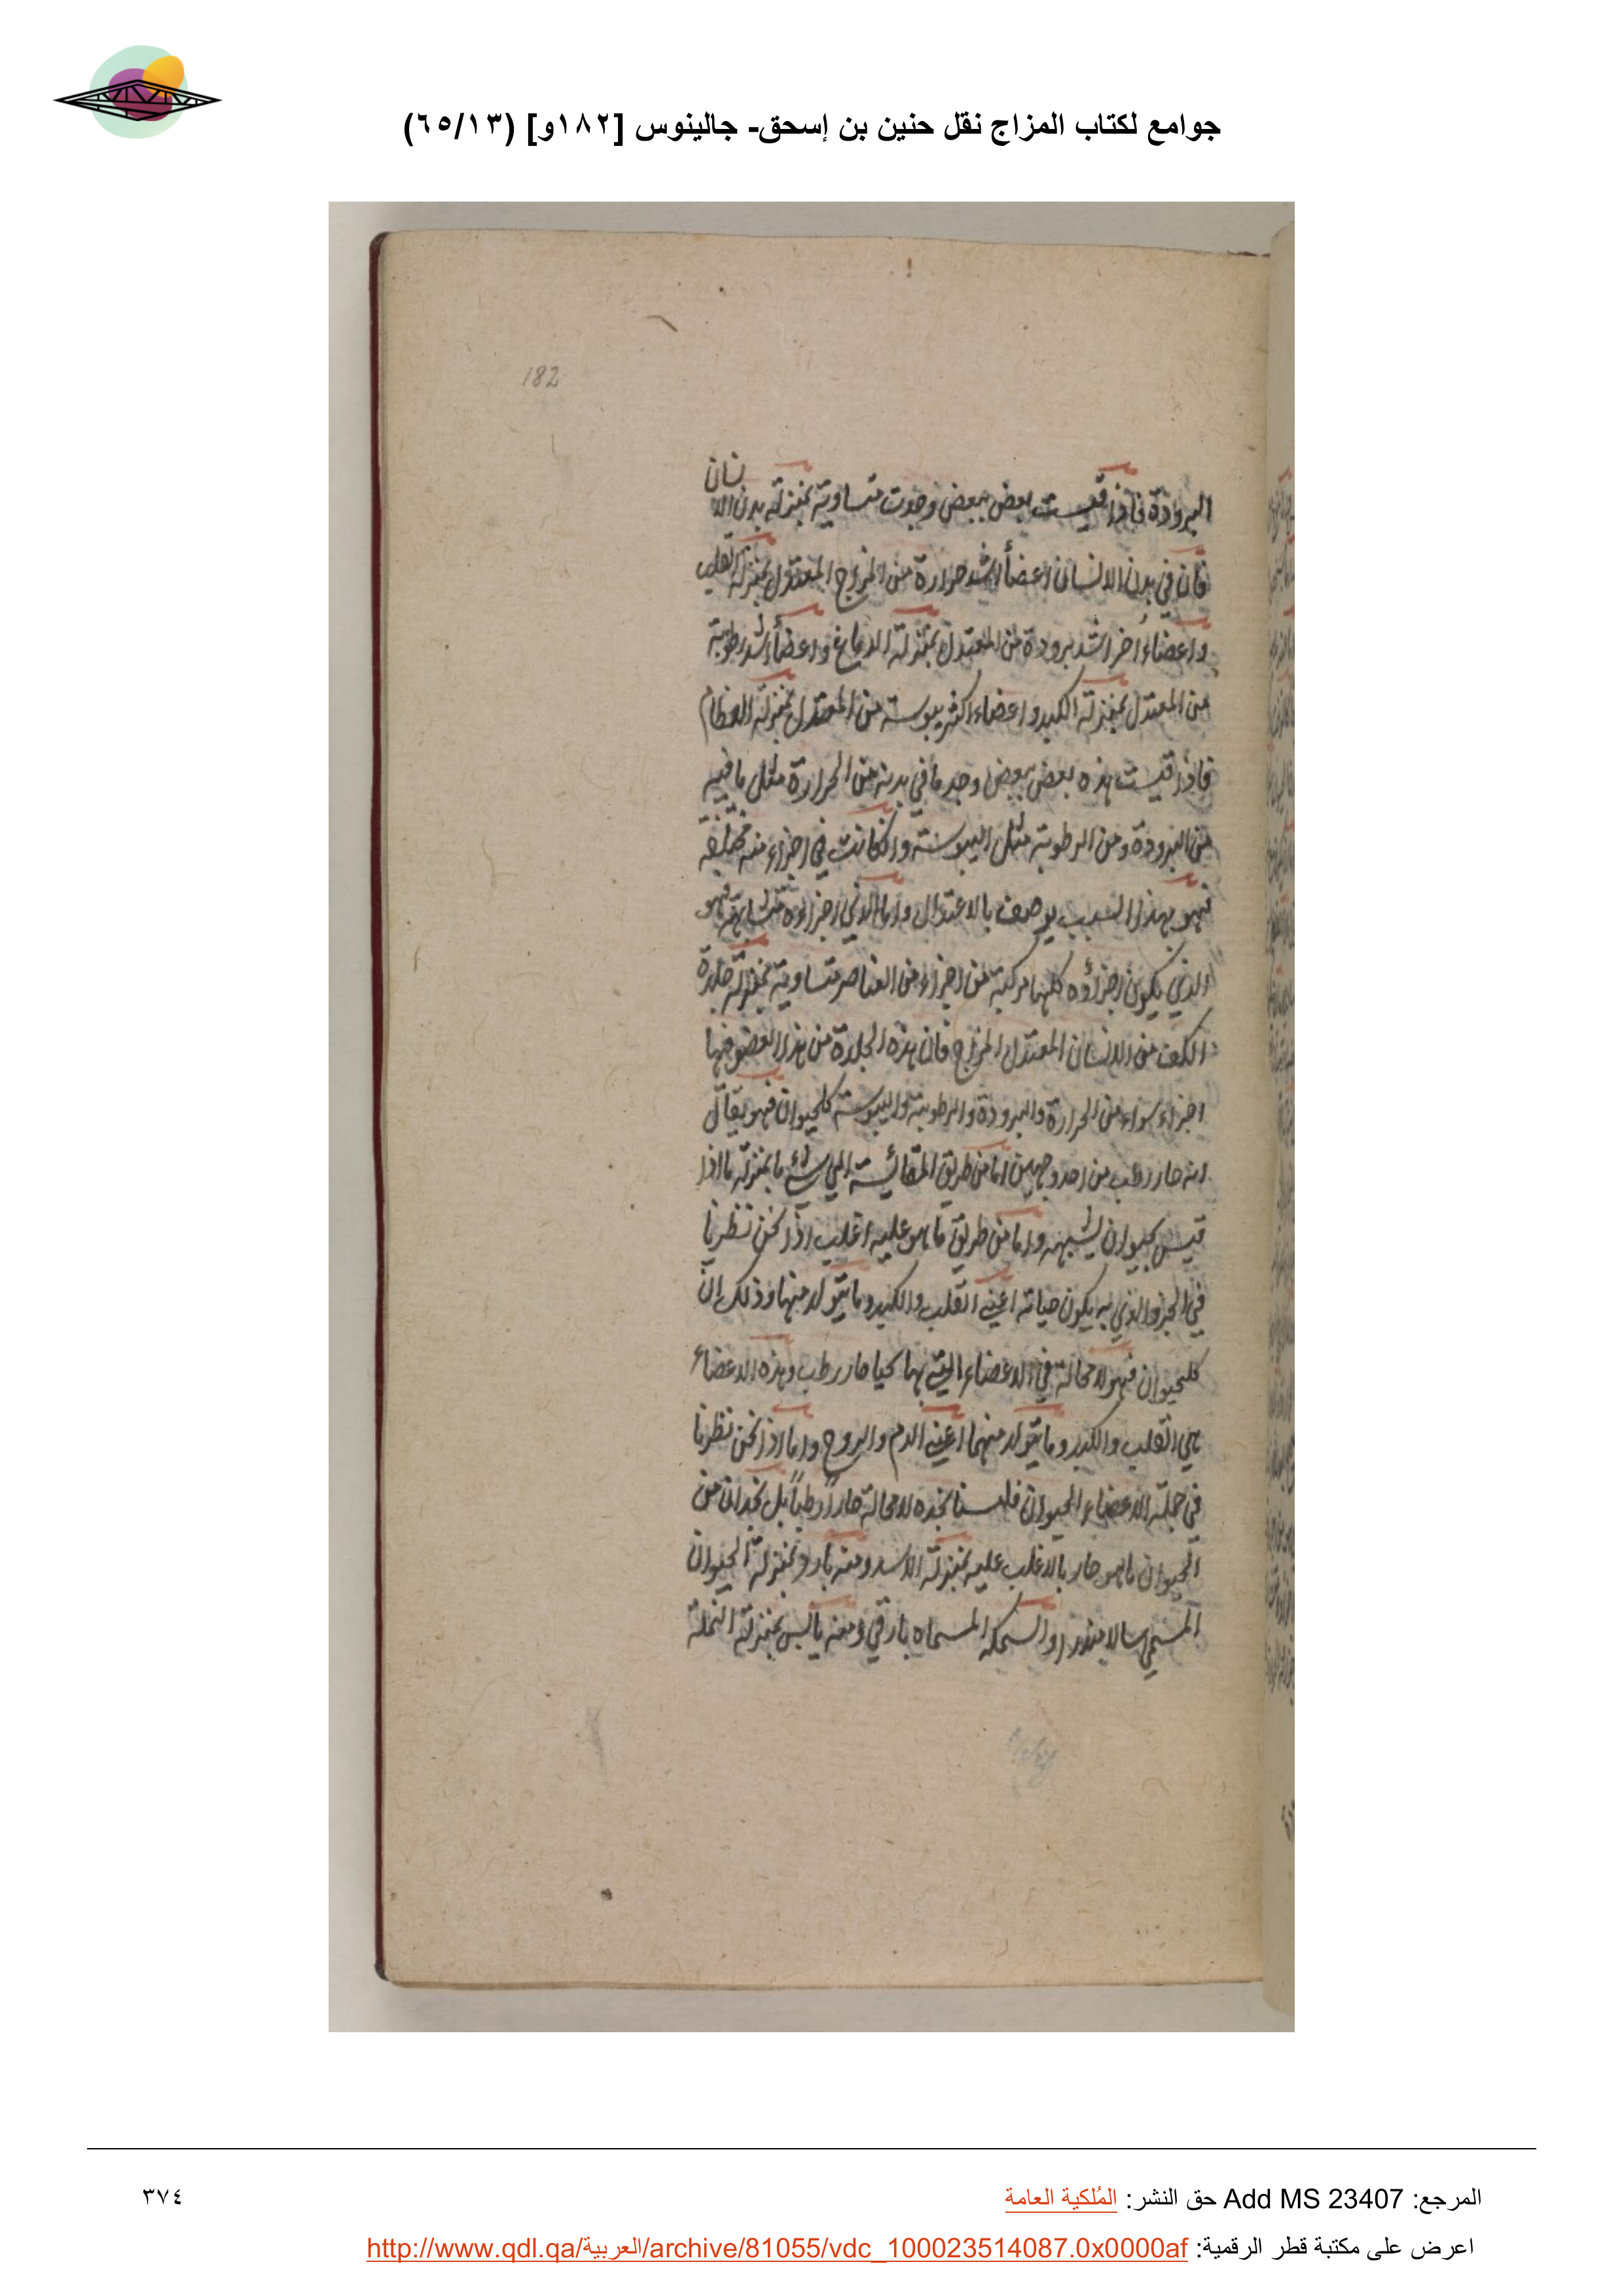 جوامع لكتاب المزاج نقل حنين بن إسحق- جالينوس [١٨٢و] (٦٥/١٣)
182
البرودة فاذا قيست بعض ببعض وجدت متساوية بمنزلة بدن الانسان
فان في بدن الانسان اعضأ اشد حرارة من المزاج المعتدل بمنزلة القلب
واعضاء أخر اشد برودة من المعتدل بمنزلة الدماغ واعضأ اشد رطوبة
من المعتدل بمنزلة الكبد واعضاء اكثر يبوسة من المعتدل بمنزلة العظام
فاذا قيست هذه بعض ببعض وجد ما في بدنه من الحرارة مثل ما فيه
من البرودة ومن الرطوبة مثل اليبوسة وان كانت في اجزاء منه مختلفة
فهو بهذا السبب يوصف بالاعتدال واما الذي اجزاؤه متشابهة فهو
الذي يكون اجزأوه كلها مركبة من اجزاء من العناصر متساوية بمنزلة جلدة
الكف من الانسان المعتدل المزاج فان هذه الجلدة من هذا العضو فيها
اجزاء سواء من الحرارة والبرودة والرطوبة واليبوسة كلحيوان فهو يقال
انه حار رطب من احد وجهين اما من طريق المقائسة الي شئ ما بمنزلة ما اذا
قيس بحيوان يشبهه واما من طريق ما هو عليه اغلب اذا نحن نظرنا
في الجزو الذي به يكون حياته اعني القلب والكبد وما يتولد منها وذلك ان
كلحيوان فهو لا محالة في الاعضاء التي بها يحيا حار رطب وهذه الاعضاء
هي القلب والكبد وما يتولد منهما اعني الدم والروح واما اذا نحن نظرنا
في جملة الاعضاء الحيوان فلسنا نجده لا محالة حاراً رطباً بل نجد ان من
الحيوان ما هو حار بالاغلب عليه بمنزلة الاسد ومنه بارد بمنزلة الحيوان
المسمي سالامندرا والسمكه المسماه نارقي ومنه يابس بمنزلة النملة
المرجع: Add MS 23407 حق النشر: المُلكية العامة
٣٧٤
اعرض على مكتبة قطر الرقمية: http://www.qdl.qa/العربية/archive/81055/vdc_100023514087.0x0000af